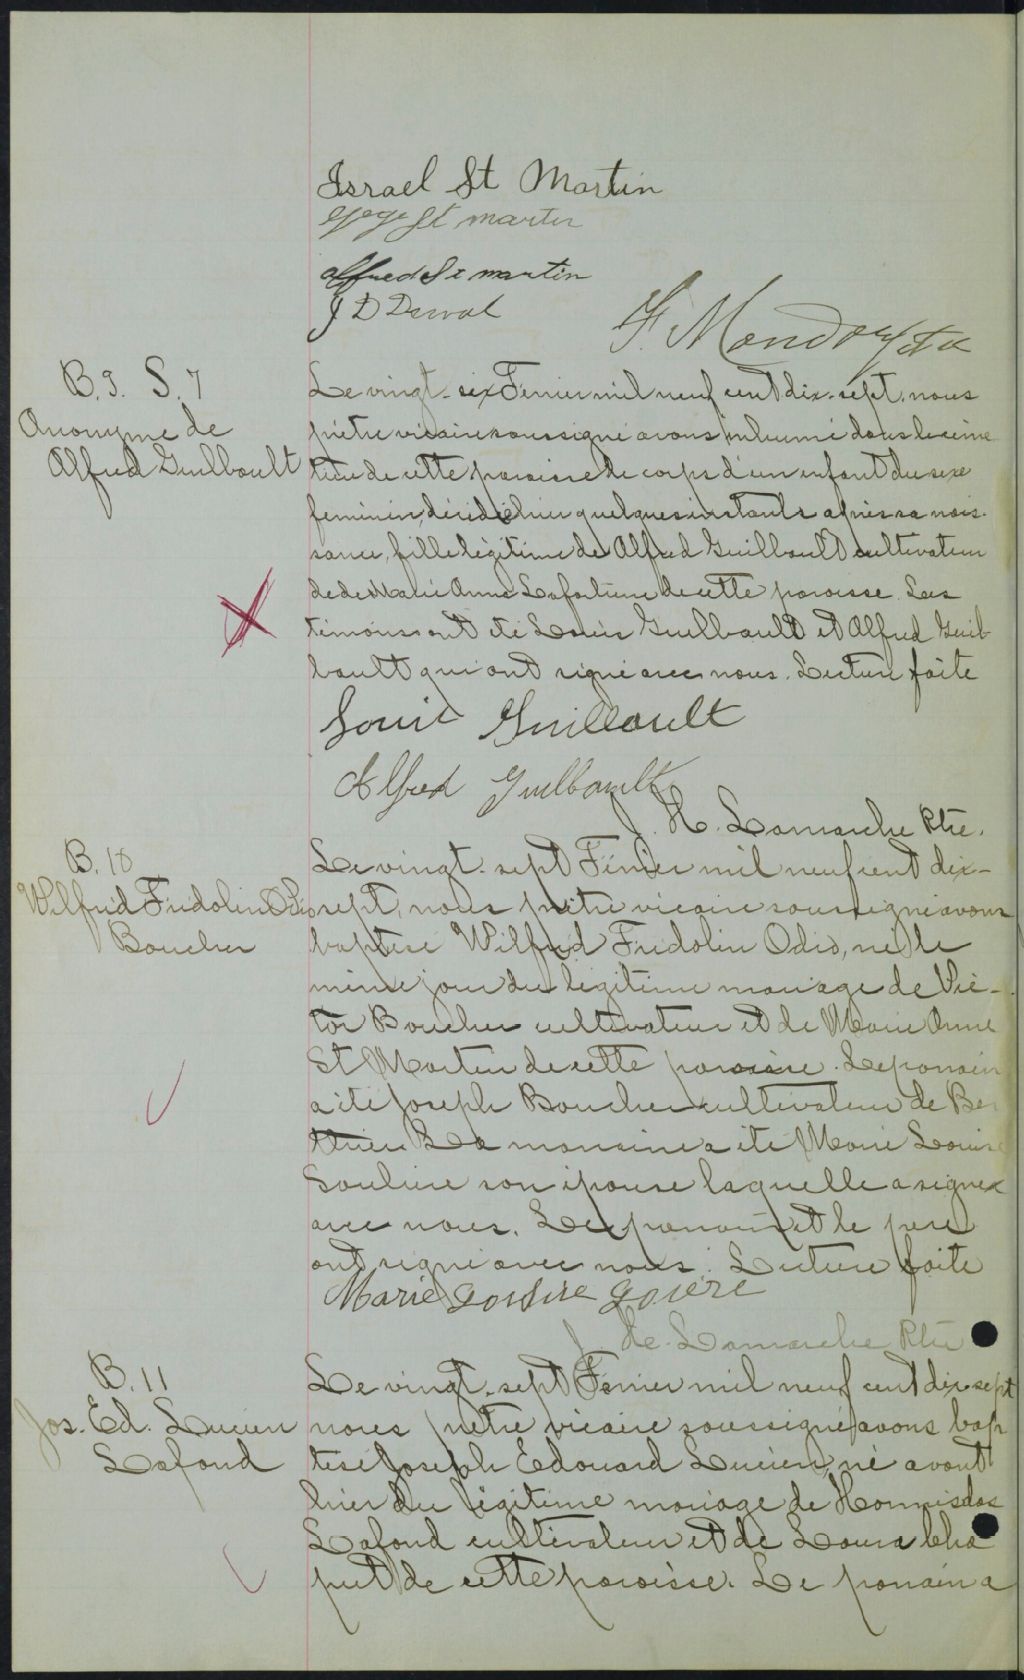 Israel St Martin
George St martin
alfred St martin
J D Duval
F. Mondor
B. 9. S. 7
Anonyme de
Alfred Guilbault
Le vingt-six Fevrier mil neuf cent dix-sept, nous
prêtre vicaire soussigné avons inhumé dans le cime
tière de cette paroisse le corps d'un enfant du sexe
feminin, décédé hier quelques instants après sa nais-
sance, fille légitime de Alfred Guilbault cultivateur
de de Marie Anna Lafortune de cette paroisse. Les
témoins ont été Louis Guilbault et Alfred Guil-
bault qui ont signé avec nous. Lecture faite
Louis Guilbault
Alfred Guilbault
J. H. Lamarche Ptre.
B. 10
Wilfrid Fridolin Odio
Boucher
Le vingt-sept Février mil neuf cent dix-
sept, nous prêtre vicaire soussigné avons
baptisé Wilfrid Fridolin Odio, né le
même jour du légitime mariage de Vic-
tor Boucher cultivateur et de Marie Anne
St Martin de cette paroisse. Le parrain
a été Joseph Boucher cultivateur de Ber
thier La marraine a été Marie Louise
son épouse laquelle a signé
avec nous. Le parrain et le père
ont signé avec nous. Lecture faite
Marie
J. H. Lamarche Ptre
B. 11
Jos. Ed. Lucien
Lafond
Le vingt-sept Fevrier mil neuf cent dix-sept
nous prêtre vicaire soussigné avons bap
tisé Joseph Edouard Lucien, né avant
hier du légitime mariage de Hormisdas
Lafond cultivateur et de Laura Cha
put de cette paroisse. Le parrain a